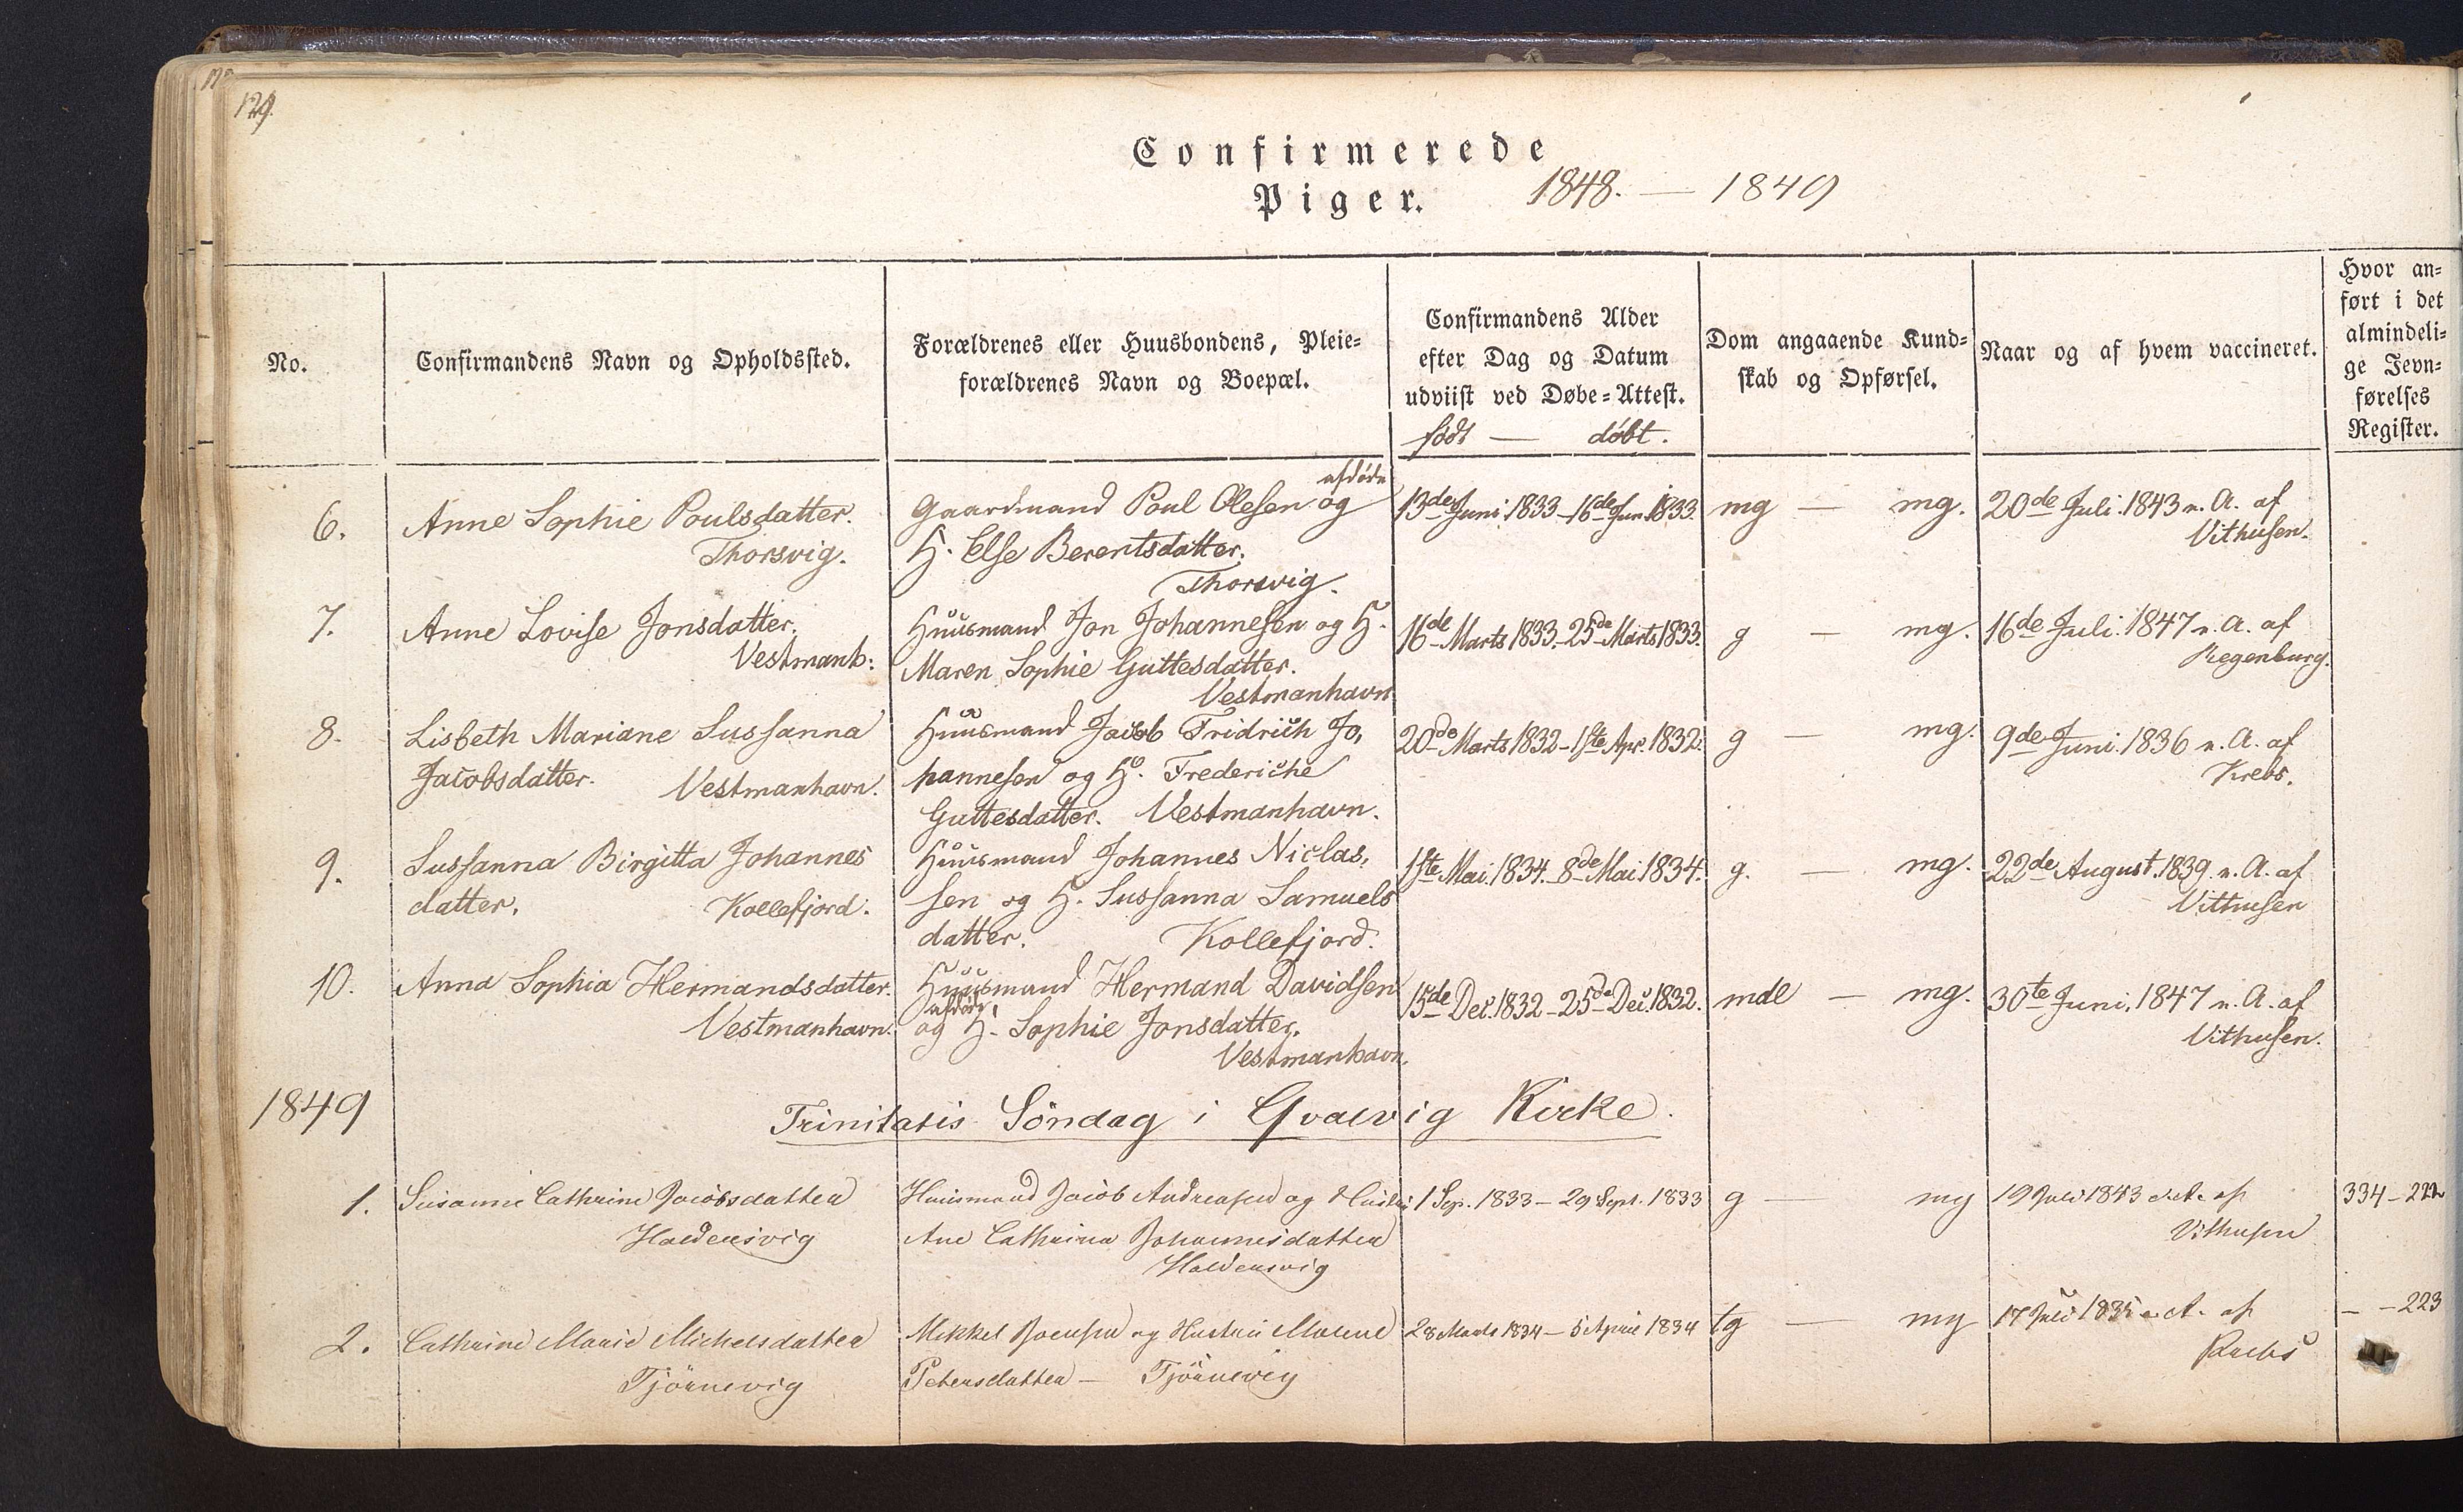 129.
Confirmerede
Piger. 1848. — 1849
No.
Confirmandens Navn og Opholdssted.
Forældrenes eller Huusbondens, Pleie-
forældrenes Navn og Boepæl.
Confirmandens Alder
efter Dag og Datum
udviist ved Døbe-Attest.
født — døbt.
Dom angaaende Kund-
skab og Opførsel.
Naar og af hvem vaccineret.
Hvor an-
ført i det
almindeli-
ge Jevn-
førelses
Register.
6.
Anne Sophie Poulsdatter.
Thorsvig.
afdøde
Gaardmand Poul Olesen og
H. Else Berentsdatter.
Thorsvig.
13de Juni 1833 – 16de Jun. 1833.
mg — mg.
20de Juli 1843 n. A. af
Vithusen.
7.
Anne Lovise Jonsdatter.
Vestmanh:
Huusmand Jon Johannesen og H.
Maren Sophie Guttesdatter.
Vestmanhavn
16de Marts 1833. – 25de Marts 1833.
g — mg.
16de Juli 1847 n. A. af
Regenburg.
8.
Lisbeth Mariane Sussanna
Jacobsdatter. Vestmanhavn.
Huusmand Jacob Fridrich Jo,
hannesen og H. Frederiche
Guttesdatter. Vestmanhavn.
20de Marts 1832 – 1ste Apr. 1832.
g — mg.
9de Juni 1836 n. A. af
Krebs.
9.
Sussanna Birgitta Johannes
datter. Kollefjord.
Huusmand Johannes Niclas,
sen og H. Sussanna Samuels
datter. Kollefjord.
1ste Mai 1834. – 8de Mai 1834.
g. — mg.
22de August 1839 n. A. af
Vithusen
10.
Anna Sophia Hermandsdatter.
Vestmanhavn.
Huusmand Hermand Davidsen
afdøde
og H. Sophie Jonsdatter.
Vestmanhavn.
15de Dec. 1832 – 25de Dec. 1832.
mdl — mg.
30te Juni 1847 n. A. af
Vithusen.
1849
Trinitatis Söndag i Qvalvig Kirke.
1.
Susanne Cathrine Jacobsdatter
Haldersvig
Huusmand Jacob Andreasen og Hustru
Ane Cathrina Johannesdatter
Haldersvig
1 Sep. 1833 – 29 Sept. 1833
g — mg
19 Juli 1843 n. A. af
Vithusen
334 – 222
2.
Cathrine Marie Michelsdatter
Tjörnevig
Mikkel Joensen og Hustru Malene
Petersdatter – Tjörnevig
28 Marts 1834 – 5 April 1834
tg — mg
17 Juli 1835 n. A. af
Krebs
– – 223